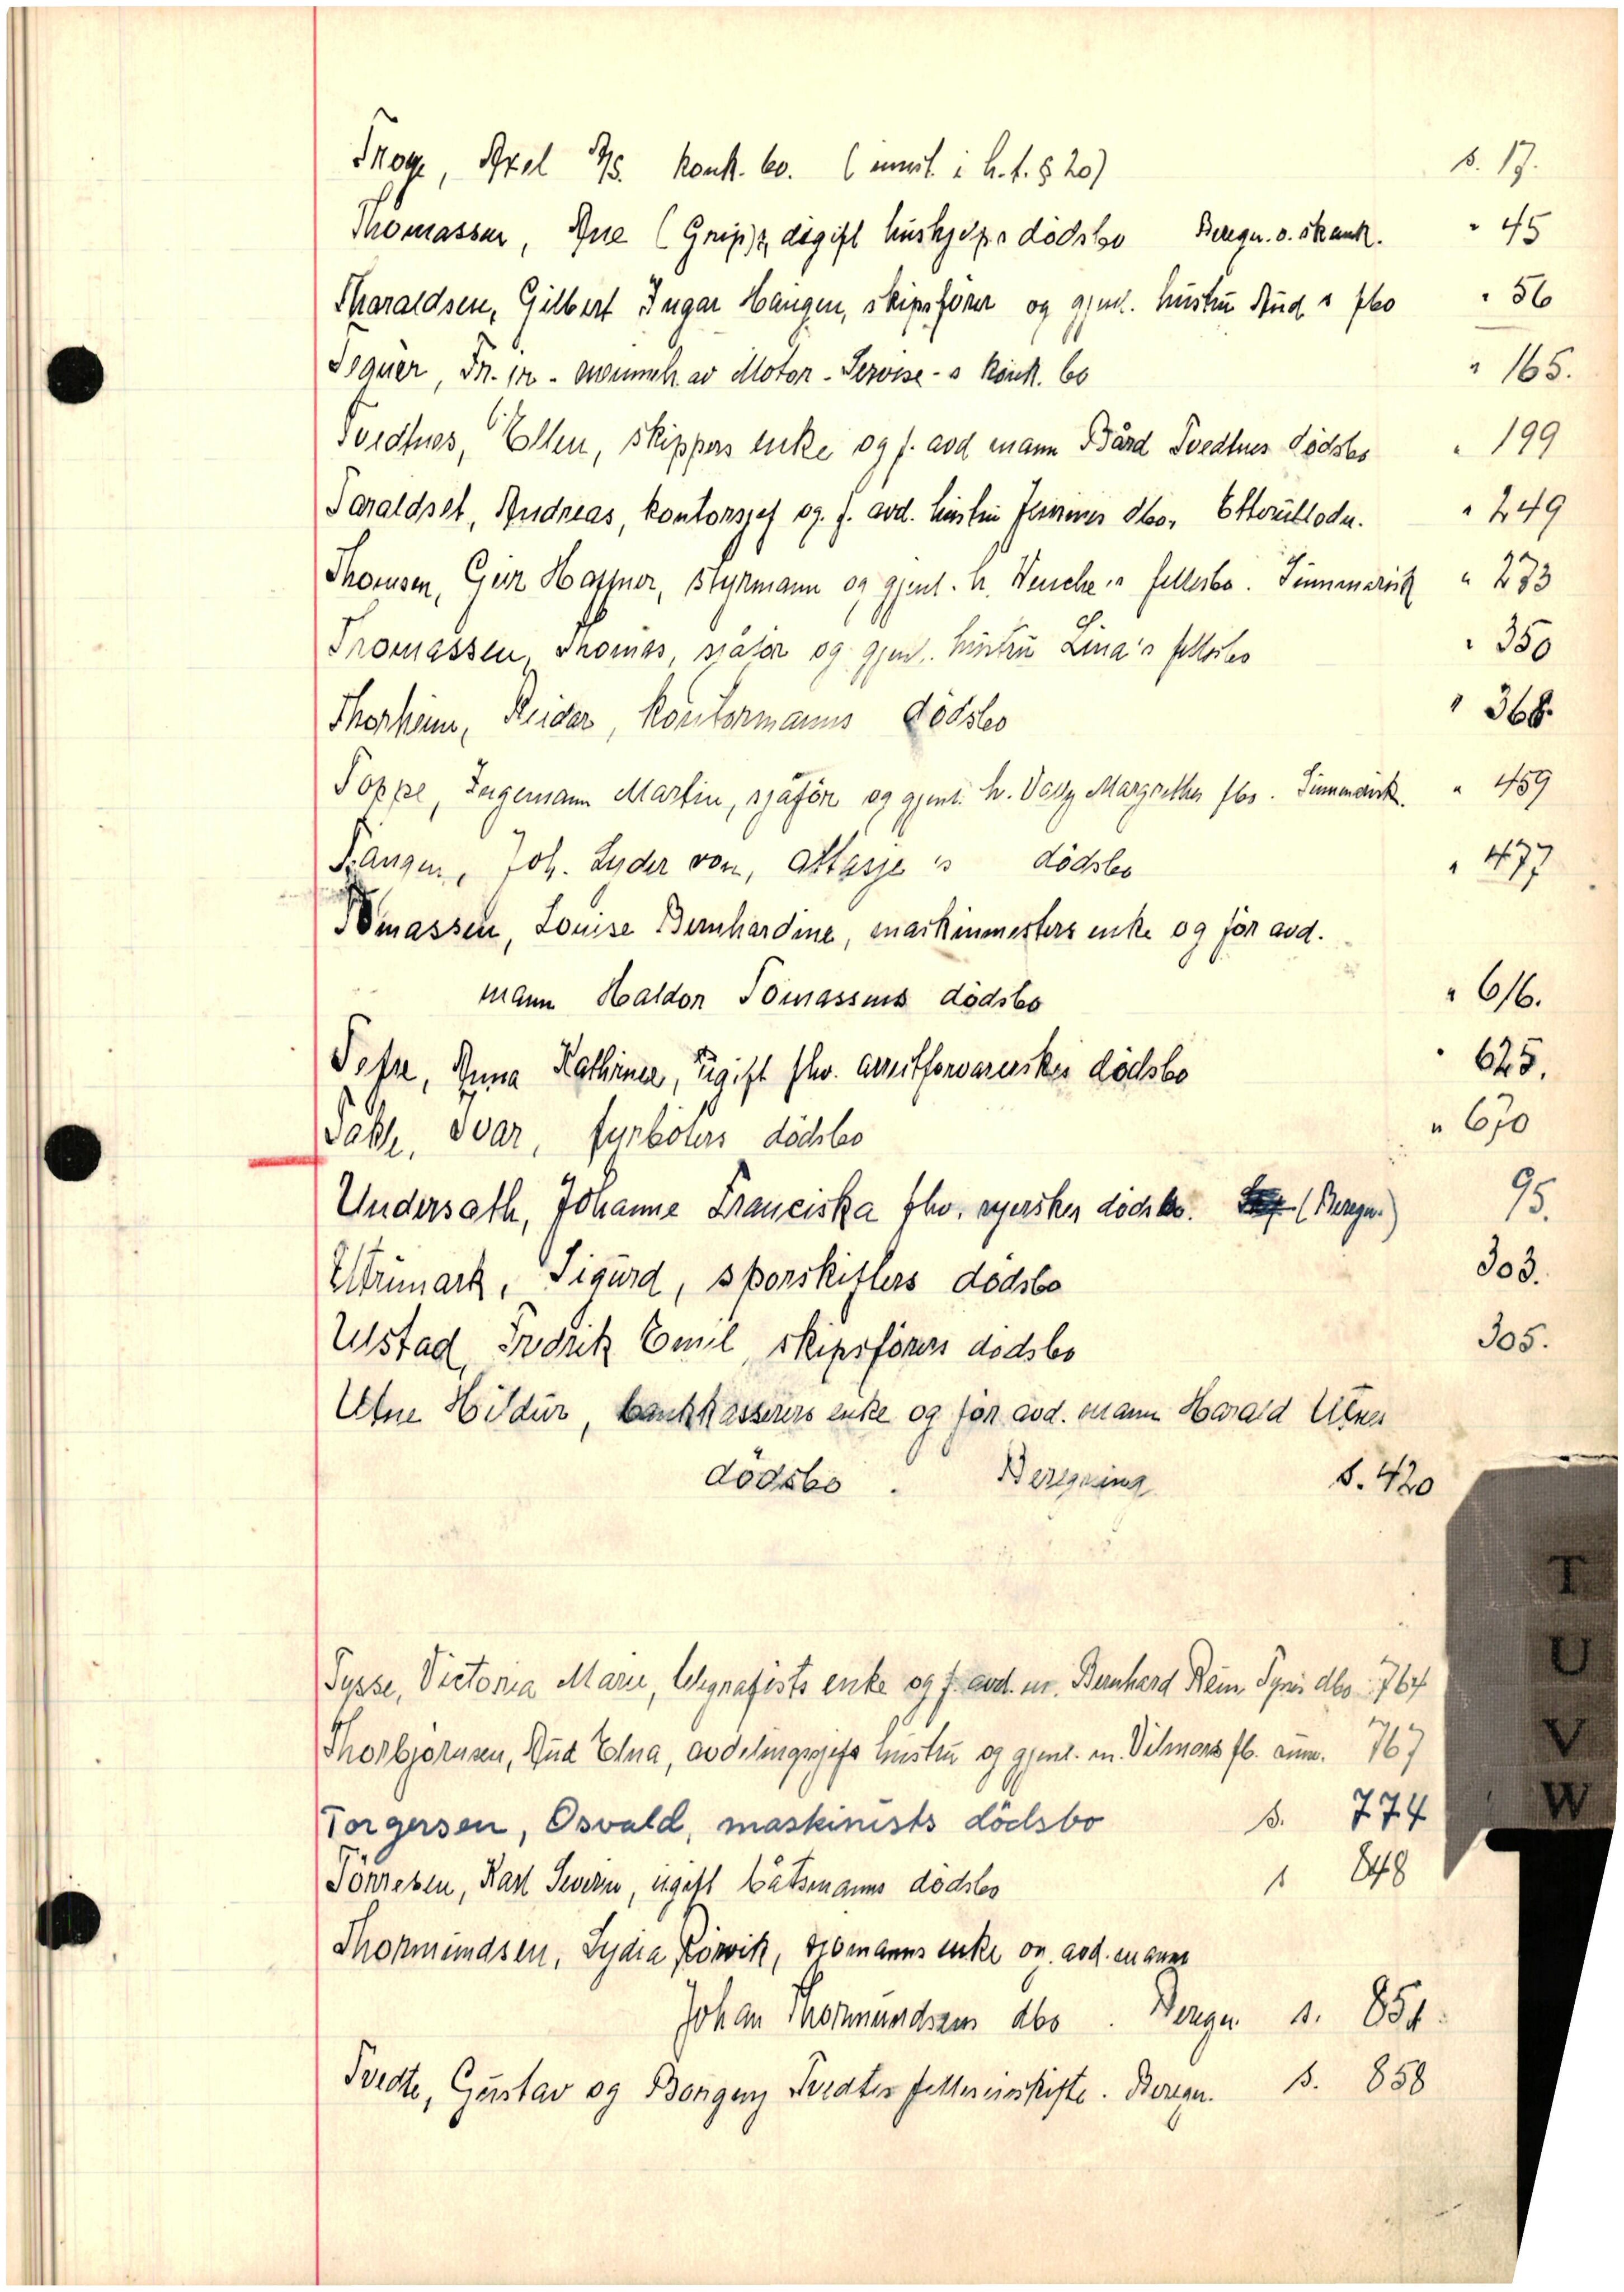 Axel A/S. konk. bo. (innst. i h.t. § 20) s. 17.
Thomassen, Ane (Grip), ugift dødsbo Beregn. o. skank. " 45
Tharaldsen, Gilbert Ingar Haugen, skipsfører og gjenl. hustru Aud s fbo " 56
Fr. jr. av Motor-Servise-s konk. bo " 165.
Tvedtnes, Ellen, skippers enke og f. avd mann Bård Tvedtnes dødsbo " 199
Taraldset, Andreas, kontorsjef og f. avd. hustru dbo, " 249
Thomsen, Geir Haffner, styrmann og gjenl. h. Wenche's fellesbo. " 273
Thomassen, Thomas, og gjenl. hustru Lina's fellesbo " 350
Thorheim, Reidar, kontormanns dödsbo " 368.
Toppe, Ingemann Martin, sjåför og gjenl. h. Vally Margrethes fbo. " 459
Tangen, Joh. Lyder von, attasje 's dödsbo " 477
Tomassen, Louise Bernhardine, maskinmesters enke og før avd.
mann Haldor Tomassens dødsbo " 616.
Anna Kathrine, ugift fhv. dödsbo " 625.
Ivar, fyrböters dödsbo " 670
Undersath, Johanne Franciska fhv. syerskes dödsbo. (Beregn.) 95.
Sigurd, sporskifters dødsbo 303.
Ulstad, Fredrik Emil, skipsförers dødsbo 305.
Utne Hildur, bankkasserers enke og før avd. mann Harald Utnes
dødsbo. Beregning s. 420
T
U
V
W
Tysse, Victoria Marie, telegrafists enke og f. avd. m. Bernhard Rein Tysses dbo 764
Thorbjørnsen, Aud Edna, avdelingssjefs hustru og gjenl. m. Vilmars fb. 767
Torgersen, Osvald, maskinists dödsbo s. 774
Tönnesen, Karl Severin, ugift båtsmanns dödsbo s 848
Thormundsen, Lydia Rörvik, enke og avd. manns
Johan Thormundsens dbo. Beregn. s. 851.
Tvedte, Gustav og Borgny Tvedtes felleseieskifte. Beregn. s. 858